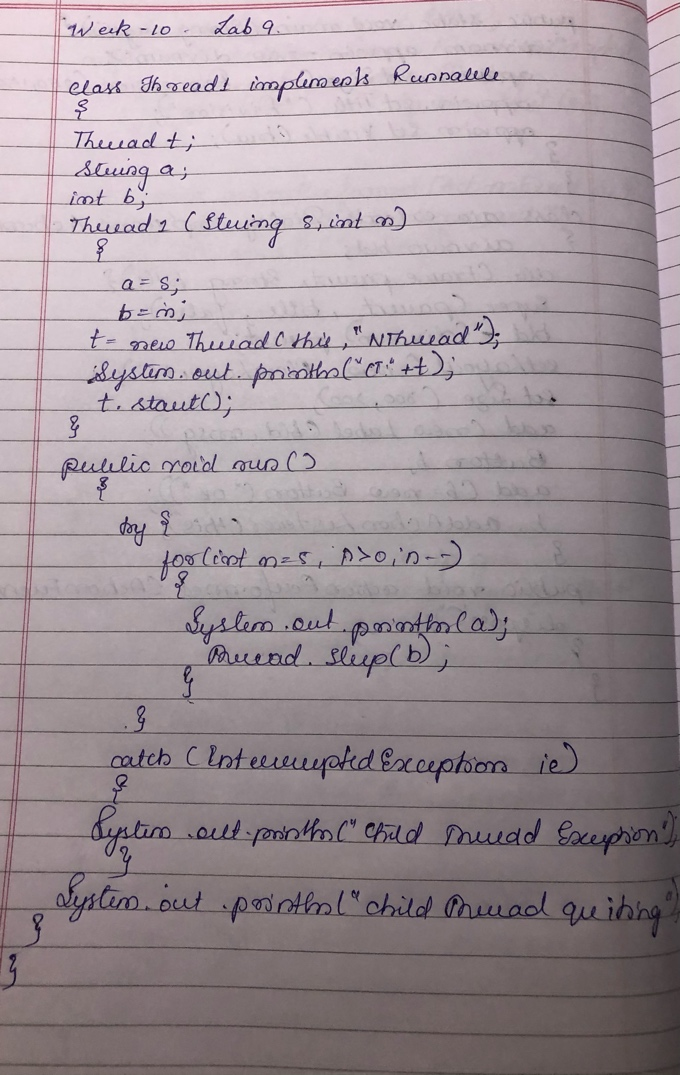 Week - 10 - Lab 9.
class Thread1 implements Runnable
{
Thread t;
String a;
int b;
Thread1 (String s, int n)
{
a = s;
b = n;
t = new Thread(this, "NThread");
System.out.println("CT:" +t);
t.start();
}
public void run()
{
try {
for(int n=5, n>0; n--)
{
System.out.println(a);
Thread.sleep(b);
}
}
catch (InterruptedException ie)
{
System.out.println("child Thread Exception");
}
System.out.println("child Thread quiting")
}
}